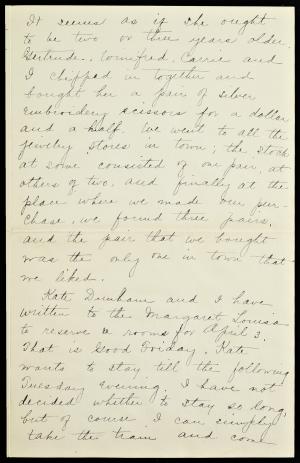 It seems as if she ought
to be two or three years older.
Gertrude, Winifred, Carrie and
I chipped in together and
bought her a pair of silver
embroidery scissors for a dollar
and a half. We went to all the
jewelry stores in town; the stock
at some consisted of one pair, at
others of two, and finally at the
place where we made our pur-
chase, we found three pairs,
and the pair that we bought
was the only one in town that
we liked.
Kate Dunham and I have
written to the Margaret Louisa
to reserve rooms for April 3.
That is Good Friday. Kate
wants to stay till the following
Tuesday evening. I have not
decided whether to stay so long,
but of course I can simply
take the train and come